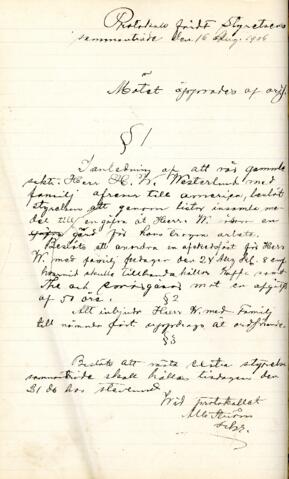 Protokoll fördt Styrelsens
sammanträde den 16 Aug. 1906
Mötet öppnades af ordf.
§ 1
I anledning af att vår gamle
sekr. Herr H. W. Westerlund med
familj afreser till amerika, beslöt
styrelsen att genom listor insamla me-
del till en gåfva åt Herr W. som en
gärd för hans trogna arbete.
Beslöts att anordna en afskedsfäst för Herr
W. med familj fredagen den 24 Aug.
hvarvid skulle tillhandahållas Kaffe samt
The och smörgåsar mot en afgift
af 50 öre. § 2
Att inbjuda Herr W. med Familj
till nämnde fäst uppdrogs åt ordförande.
§ 3
Beslöts att nästa extra styrelse
sammanträde skall hållas tisdagen den
21 ds hos
Wid protokollet